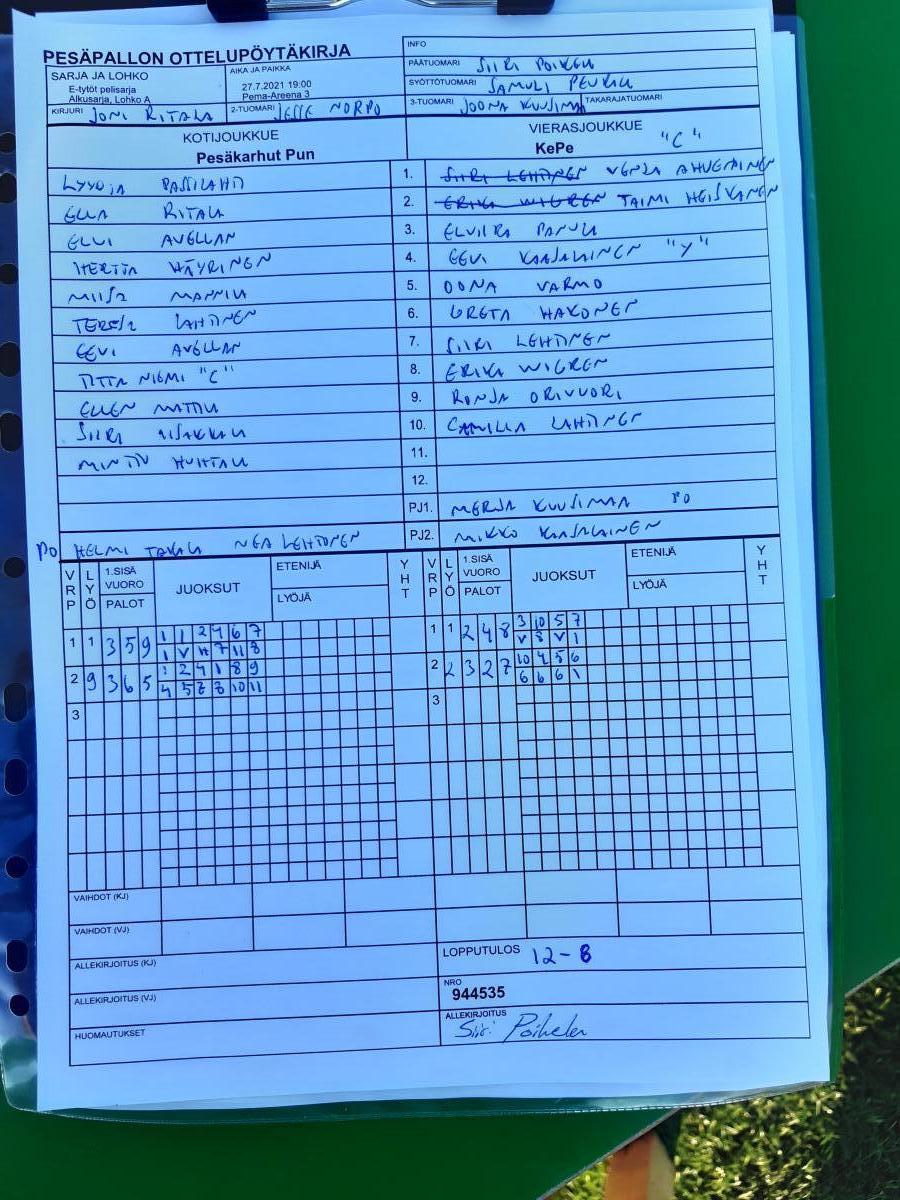 PESÄPALLON OTTELUPÖYTÄKIRJA
INFO
SARJA JA LOHKO
E-tytöt pelisarja
Alkusarja, Lohko A
AIKA JA PAIKKA
27.7.2021 19:00
Pema-Areena 3
PÄÄTUOMARI SIIRI
SYÖTTÖTUOMARI SAMULI
KIRJURI JONI RITALA
2-TUOMARI JESSE NORPO
3-TUOMARI JOONA KUUSIMAA TAKARAJATUOMARI
KOTIJOUKKUE
Pesäkarhut Pun
VIERASJOUKKUE "C"
KePe
1. SIIRI LEHTINEN VENLA AHVENAINEN
ELLA RITALA 2. ERIKA WIGREN TAIMI HEISKANEN
ELVI AVELLAN 3. ELVIIRA PANULA
HERTTA HÄYRINEN 4. EEVI KAASALAINEN "Y"
MIISA MANNILA 5. OONA VARMO
LAHTINEN 6. GRETA HAKONEN
EEVI AVELLAN 7. SIIRI LEHTINEN
TITTA NIEMI "C" 8. ERIKA WIGREN
ELLEN MATTILA 9. RONJA ORIVUORI
SIIRI 10. CAMILLA LAHTINEN
HUHTALA 11.
12.
PJ1. MERJA KUUSIMAA PO
PO HELMI TAKALA NEA LEHTONEN PJ2. MIKKO KAASALAINEN
VRP LYÖ 1.SISÄ VUORO PALOT JUOKSUT ETENIJÄ LYÖJÄ YHT
VRP LYÖ 1.SISÄ VUORO PALOT JUOKSUT ETENIJÄ LYÖJÄ YHT
1 1 3 5 9 1 1 2 4 6 7
1 V H 7 11 8
1 1 2 4 8 3 10 5 7
V 8 V 1
2 9 3 6 5 2 4 1 8 9
4 5 8 10 11
2 2 3 2 7 10 4 5 6
6 6 6 1
3
3
VAIHDOT (KJ)
VAIHDOT (VJ)
ALLEKIRJOITUS (KJ)
LOPPUTULOS 12-8
ALLEKIRJOITUS (VJ)
NRO
944535
HUOMAUTUKSET
ALLEKIRJOITUS
Siiri